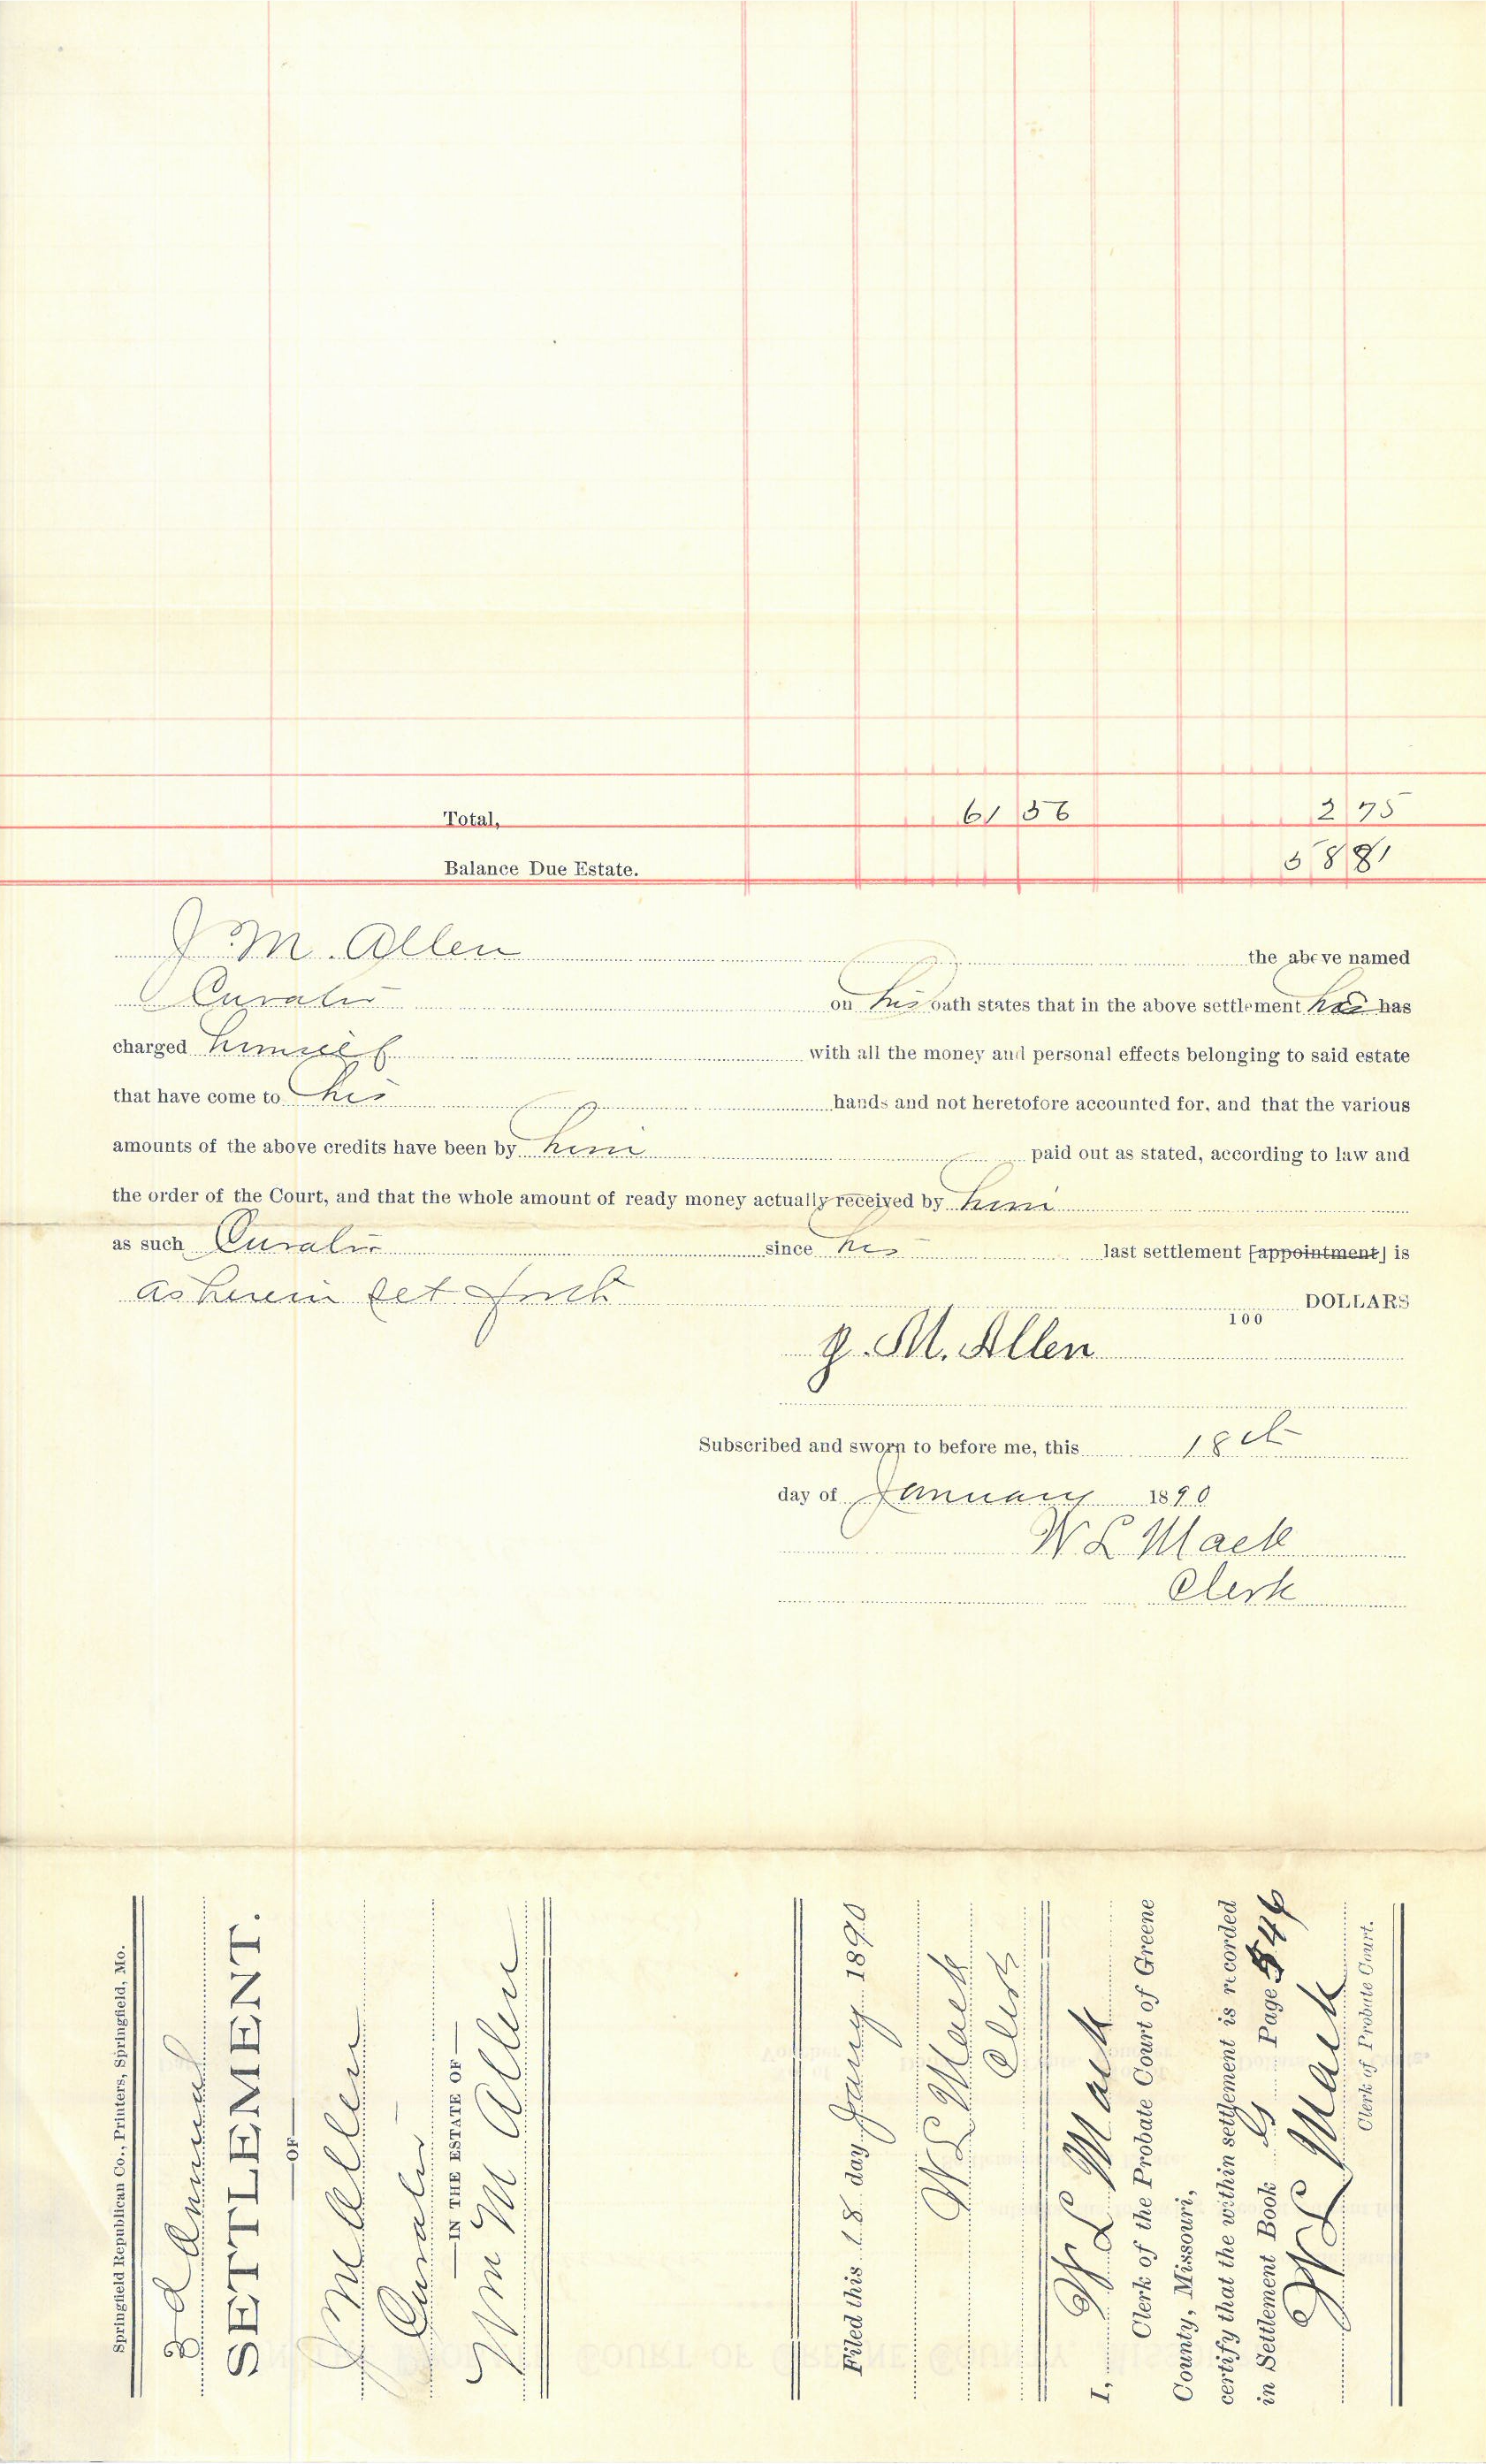 Total, 61 56 2 75
Balance Due Estate. 58 81
J. M. Allen the above named
Curator on his oath states that in the above settlement he has
charged himself with all the money and personal effects belonging to said estate
that have come to his hands and not heretofore accounted for, and that the various
amounts of the above credits have been by him paid out as stated, according to law and
the order of the Court, and that the whole amount of ready money actually received by him
as such Curator since his last settlement [appointment] is
as herein set forth DOLLARS
100
J. M. Allen
Subscribed and sworn to before me, this 18th
day of January 1890
W L Mack
Clerk
Springfield Republican Co., Printers, Springfield, Mo.
3d Annual
SETTLEMENT.
—OF—
J M Allen
Curator
—IN THE ESTATE OF—
Wm M Allen
Filed this 18 day Jany 1890
W L Mack
Clerk
I, W L Mack
Clerk of the Probate Court of Greene
County, Missouri,
certify that the within settlement is recorded
in Settlement Book Page 546
W L Mack
Clerk of Probate Court.